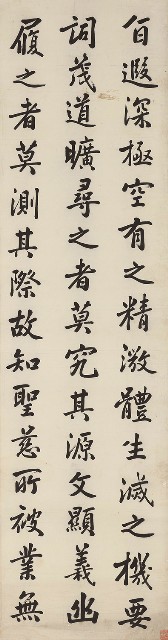 百遐深極空有之精微體生滅之機要
詞茂道曠尋之者莫究其源文顯義幽
履之者莫測其際故知聖慈所被業無